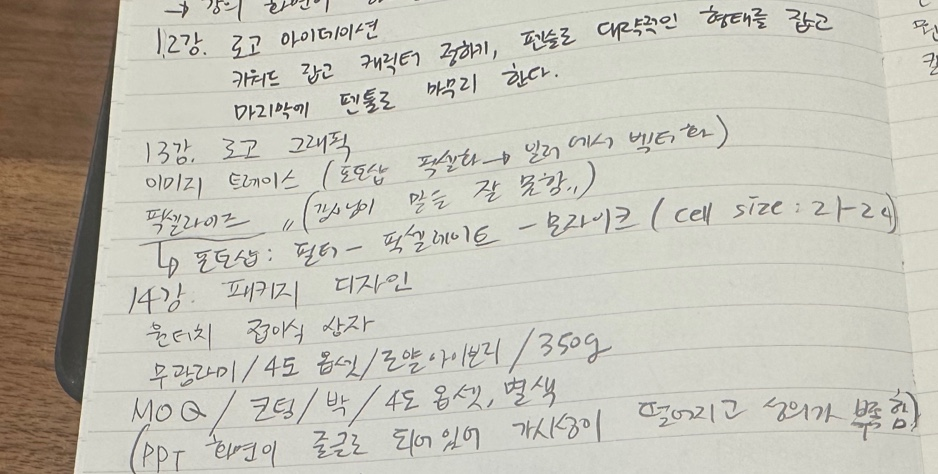 → 강의 화면이
12강. 로고 아이데이션
키워드 잡고 캐릭터 정하기, 펜슬로 대략적인 형태를 잡고
마지막에 펜툴로 마무리 한다.
13강. 로고 그래픽
이미지 트레이스 (포토샵 픽셀화 → 일러에서 벡터화)
픽셀라이즈 〃 (강사님이 말을 잘 못함,,)
↳ 포토샵: 필터 - 픽셀레이트 - 모자이크 (cell size : 21-24)
14강. 패키지 디자인
원터치 접이식 상자
무광라미 / 4도 옵셋 / 로얄아이보리 / 350g
MOQ / 코팅 / 박 / 4도 옵셋, 별색
(PPT 화면이 줄글로 되어있어 가시성이 떨어지고 성의가 부족함)